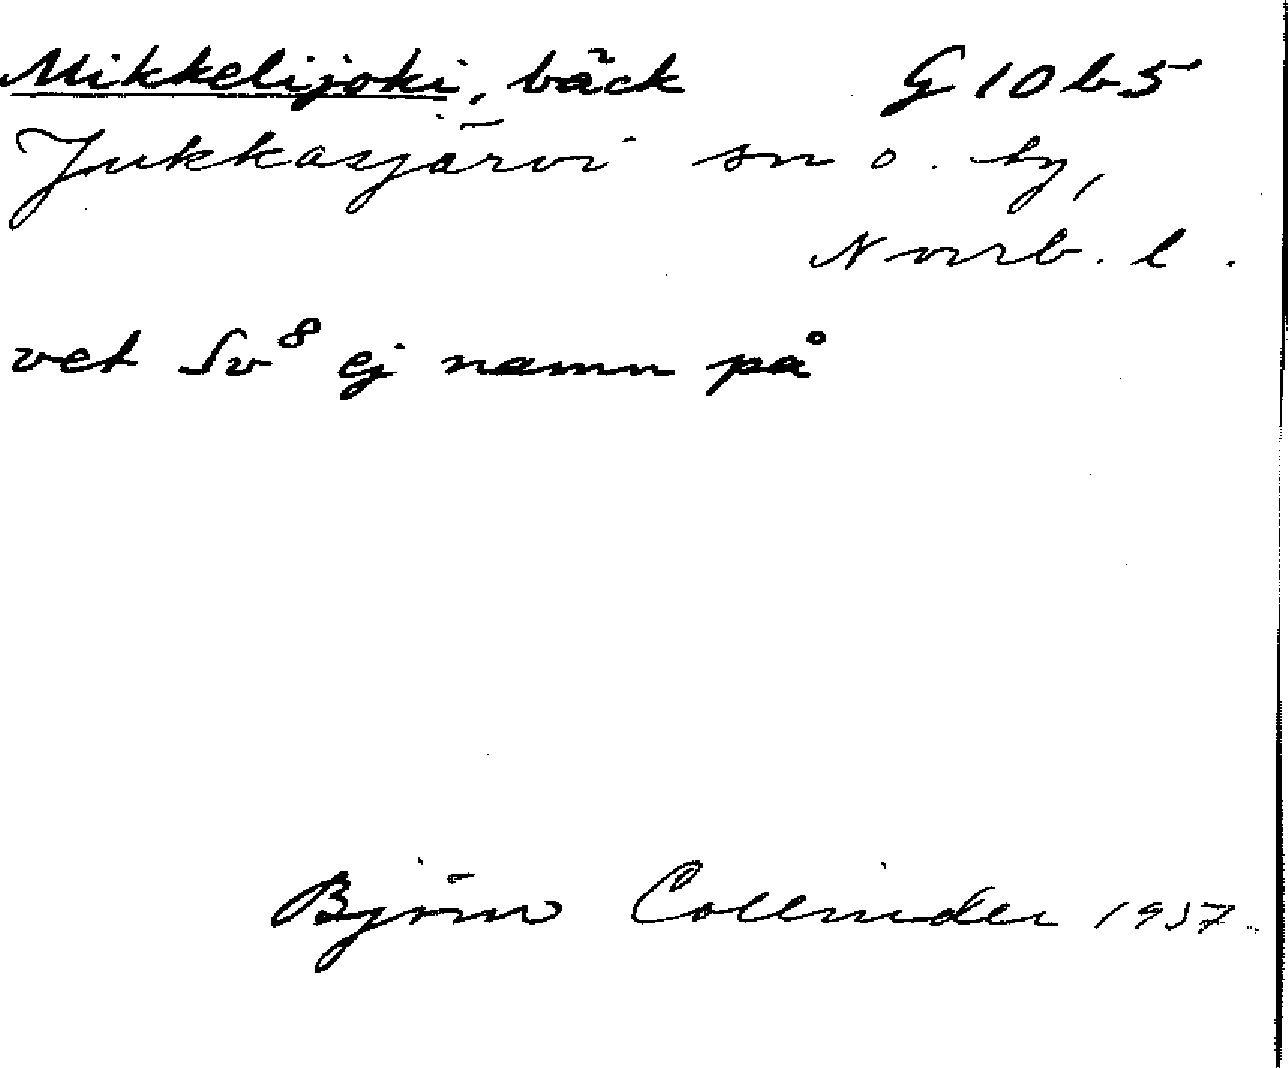 Mikkelijoki, bäck G 10 b 5
Jukkasjärvi sn o. by,
Norrb. l.
vet Sv⁸ ej namn på
Björn Collinder 1957.